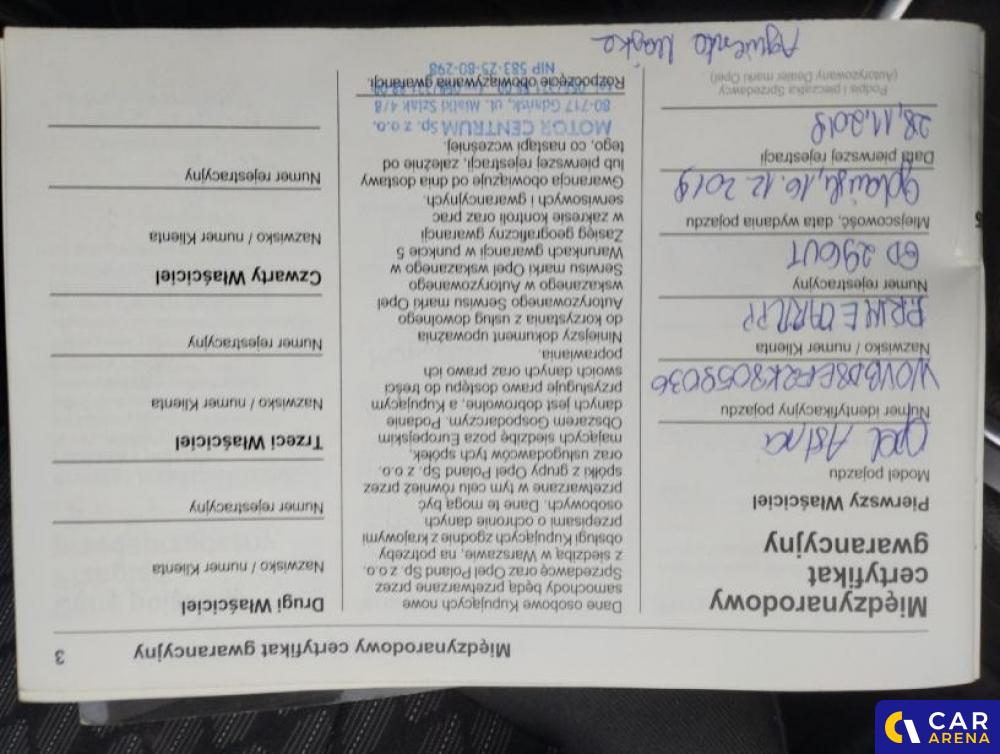 Międzynarodowy certyfikat gwarancyjny
3
Międzynarodowy
certyfikat
gwarancyjny
Pierwszy Właściciel
Model pojazdu
Opel Astra
Numer identyfikacyjny pojazdu
Nazwisko / numer Klienta
Numer rejestracyjny
GD 296UT
Miejscowość, data wydania pojazdu
Gdańsk, 16.12.2019
Data pierwszej rejestracji
28.11.2019
Podpis i pieczątka Sprzedawcy
(Autoryzowany Dealer marki Opel)
Agnieszka
Dane osobowe Kupujących nowe
samochody będą przetwarzane przez
Sprzedawcę oraz Opel Poland Sp. z o.o.
z siedzibą w Warszawie, na potrzeby
obsługi Kupujących zgodnie z krajowymi
przepisami o ochronie danych
osobowych. Dane te mogą być
przetwarzane w tym celu również przez
spółki z grupy Opel Poland Sp. z o.o.
oraz usługodawców tych spółek,
mających siedzibę poza Europejskim
Obszarem Gospodarczym. Podanie
danych jest dobrowolne, a Kupującym
przysługuje prawo dostępu do treści
swoich danych oraz prawo ich
poprawiania.
Niniejszy dokument upoważnia
do korzystania z usług dowolnego
Autoryzowanego Serwisu marki Opel
wskazanego w Autoryzowanego
Serwisu marki Opel wskazanego w
Warunkach gwarancji w punkcie 5
Zasięg geograficzny gwarancji
w zakresie kontroli oraz prac
serwisowych i gwarancyjnych.
Gwarancja obowiązuje od dnia dostawy
lub pierwszej rejestracji, zależnie od
tego, co nastąpi wcześniej.
MOTOR CENTRUM Sp. z o.o.
80-717 Gdańsk, ul. Miałki Szlak 4/8
Rozpoczęcie obowiązywania gwarancji.
NIP 583-25-80-298
Drugi Właściciel
Nazwisko / numer Klienta
Numer rejestracyjny
Trzeci Właściciel
Nazwisko / numer Klienta
Numer rejestracyjny
Czwarty Właściciel
Nazwisko / numer Klienta
Numer rejestracyjny
CAR
ARENA